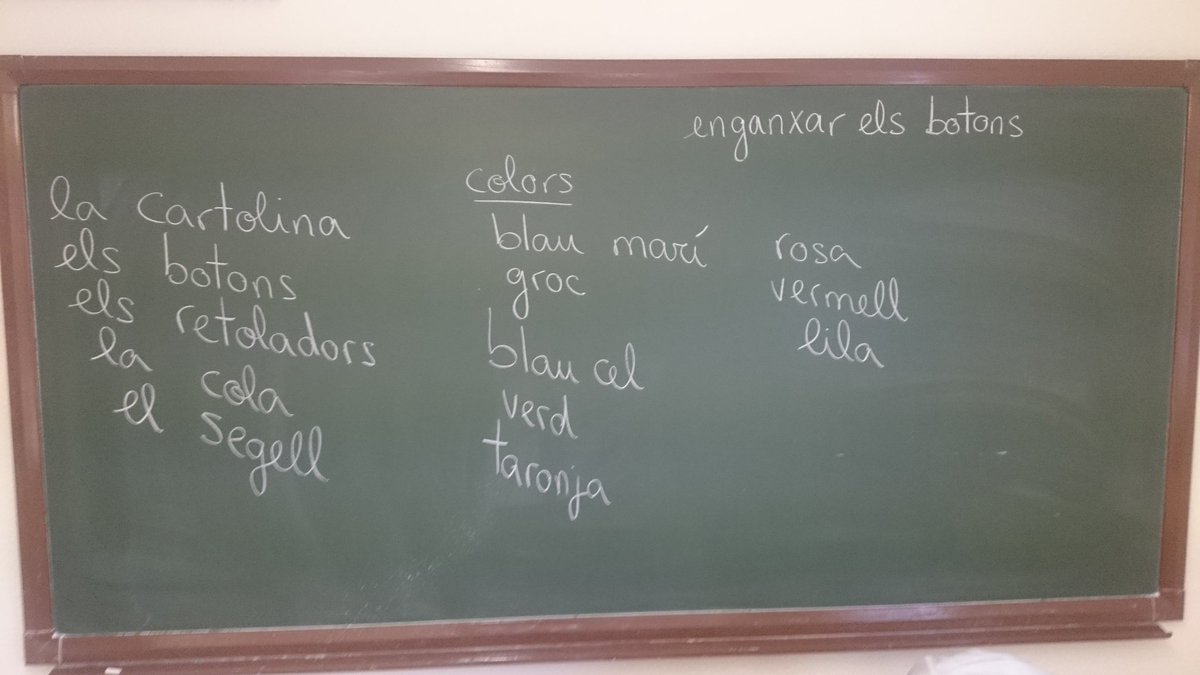 enganxar els botons
la cartolina
els botons
els retoladors
la cola
el segell
colors
blau marí
groc
blau cel
verd
taronja
rosa
vermell
lila